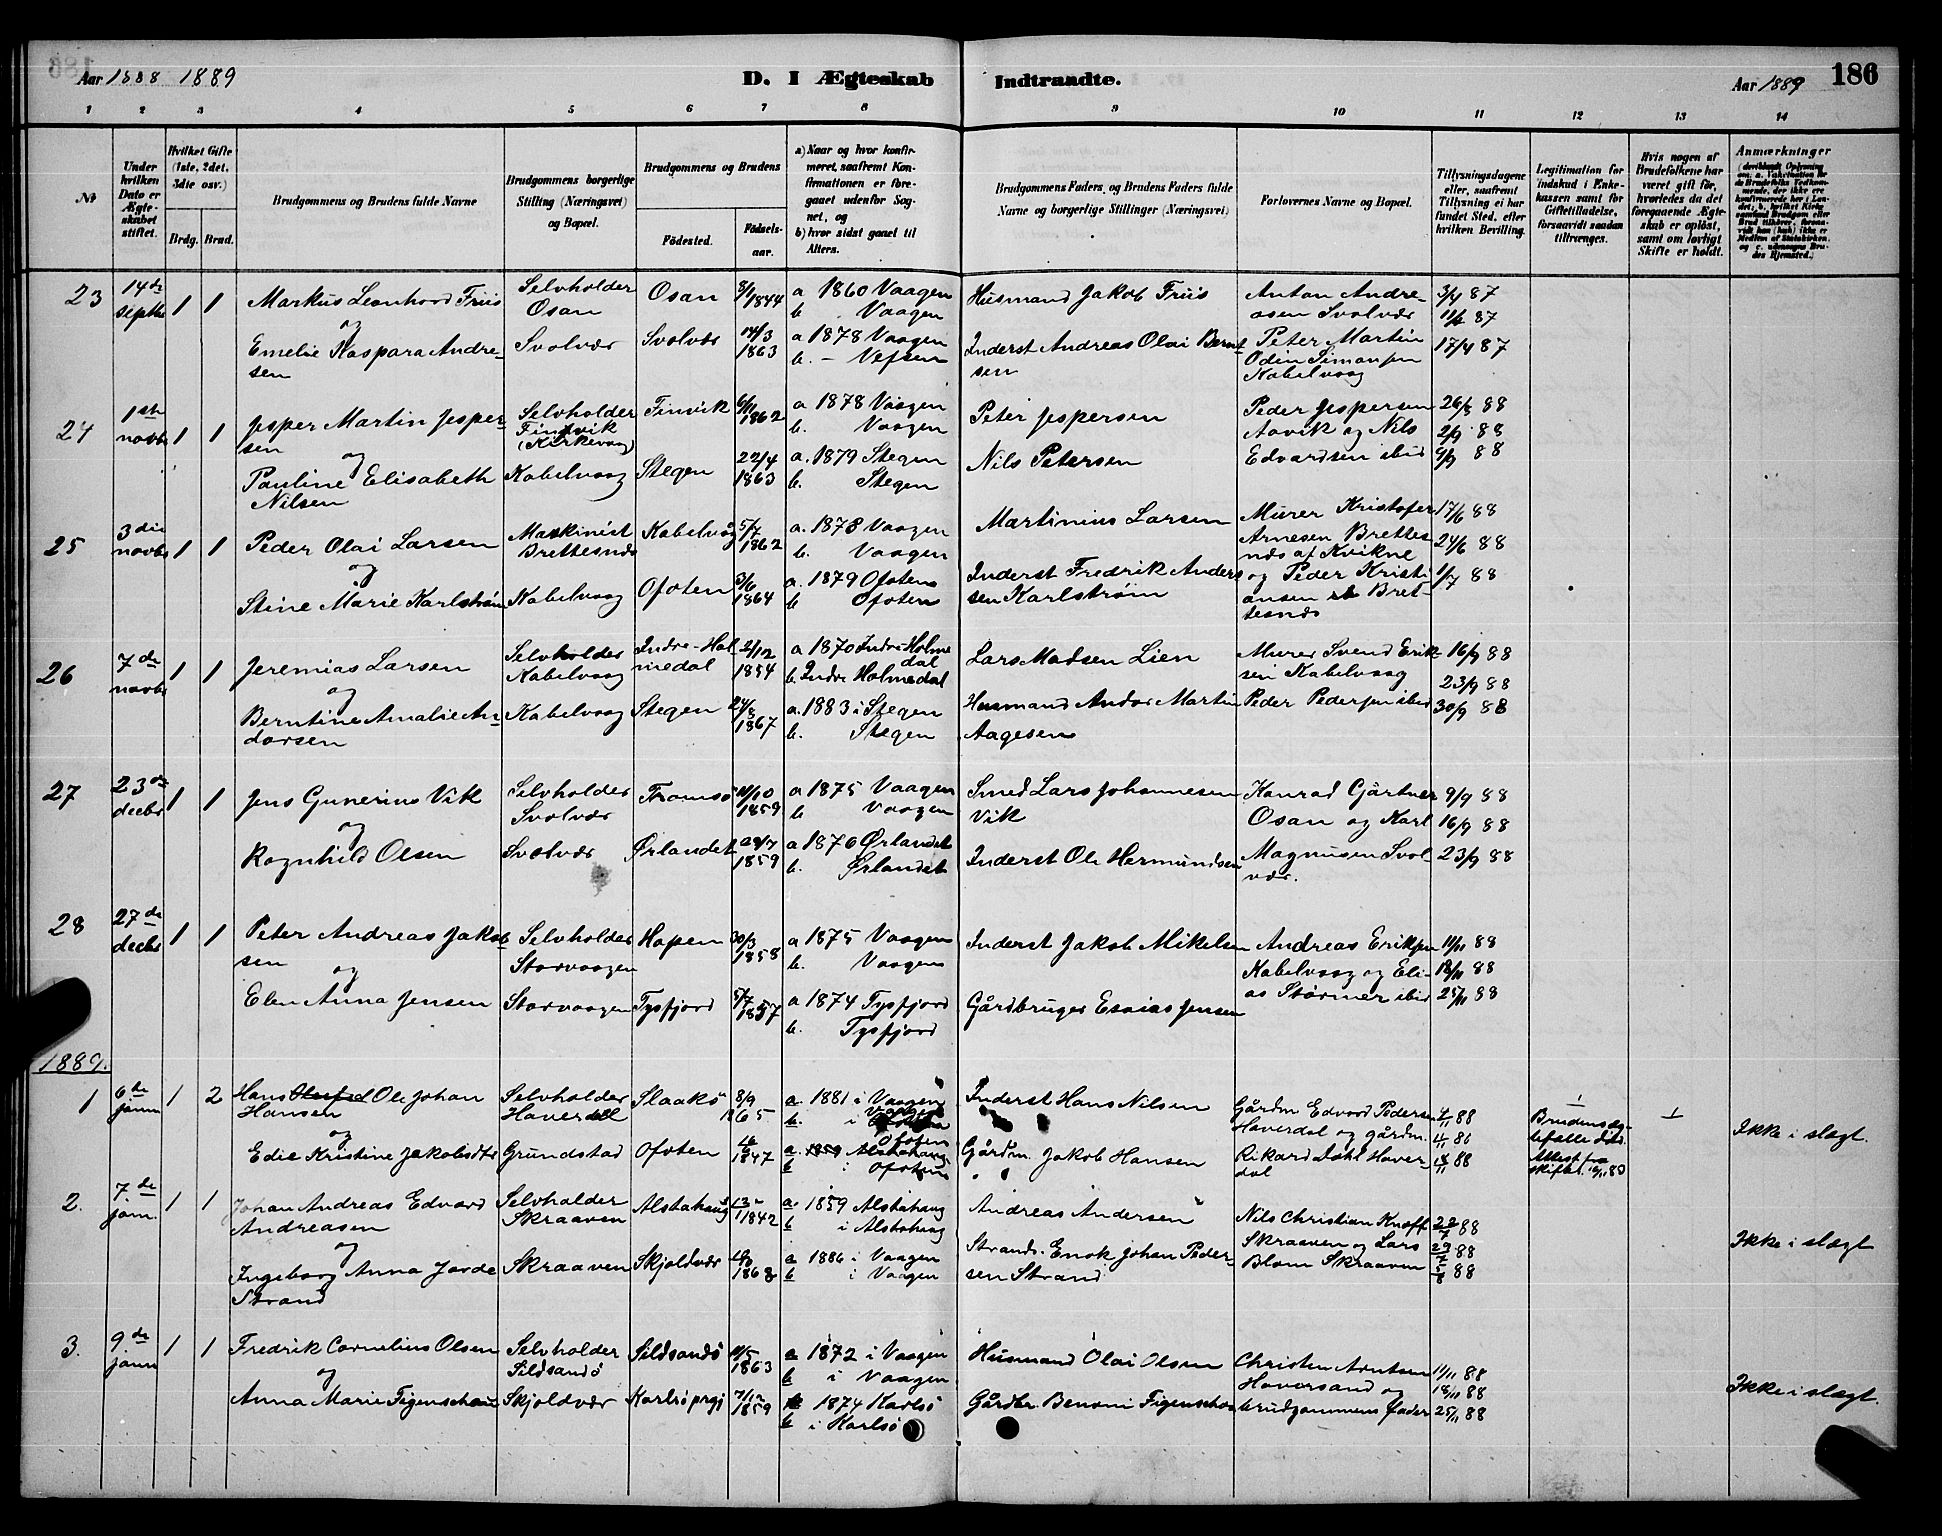 Aar 1888 1889
D. I Ægteskab Indtraadte.
Aar 1889 186
1 2 3 4 5 6 7 8 9 10 11 12 13 14
№
Under hvilken Dato er Ægteskabet stiftet.
Hvilket Gifte (1ste, 2det, 3die osv.)
Brdg. Brud.
Brudgommens og Brudens fulde Navne
Brudgommens borgerlige Stilling (Næringsvei) og Bopæl.
Brudgommens og Brudens
Fødested.
Fødselsaar.
a) Naar og hvor konfirmeret, saafremt Konfirmationen er foregaaet udenfor Sognet, og
b) hvor sidst gaaet til Alters.
Brudgommens Faders, og Brudens Faders fulde Navne og borgerlige Stillinger (Næringsvei)
Forlovernes Navne og Bopæl.
Tillysningsdagene eller, saafremt Tillysning ei har fundet Sted, efter hvilken Bevilling.
Legitimation for Indskud i Enkekassen samt for Giftetilladelse, forsaavidt saadan tiltrænges.
Hvis nogen af Brudefolkene har været gift før, hvorledes da det foregaaende Ægteskab er opløst, samt om lovligt Skifte er holdt.
Anmærkninger
23 14de septbr 1 1 Markus Leonhard Friis Selvholder Osan Osan 3/1 1844 a 1860 Vaagen b Vaagen Husmand Jakob Friis Anton Andreasen Svolvær 3/4 87 11/4 87
og
Emelie Kaspara Andresen Svolvær Svolvær 14/3 1863 a 1878 Vaagen b. – Vefsen Inderst Andreas Olai Berntsen Peter Martin Odin Simonsen Kabelvaag 17/4 87
24 1ste novbr 1 1 Jesper Martin Jespersen Selvholder Finvik (Kirkevaag) Finvik 6/11 1862 a 1878 Vaagen b. Vaagen Peter Jespersen Peder Jespersen Aavik og Nils Edvardsen ibid 26/8 88 2/9 88 9/9 88
og
Pauline Elisabeth Nilsen Kabelvaag Stegen 22/4 1863 a. 1879 Stegen b. Stegen Nils Petersen
25 3die novbr 1 1 Peder Olai Larsen Maskinist Brettesnæs Kabelvåg 5/7 1862 a. 1878 Vaagen b. Vaagen Martinius Larsen Murer Kristofer Arnesen Brettesnæs af Kvikne 17/6 88 24/6 88
og
Stine Marie Karlstrøm Kabelvaag Ofoten 3/6 1864 a. 1879 Ofoten b Ofoten Inderst Fredrik Andersen Karlstrøm og Peder Kristiansen Brettesnæs 1/7 88
26 7de novbr 1 1 Jeremias Larsen Selvholder Kabelvaag Indre-Holmedal 2/12 1854 a 1870 Indre-Holmedal b. Indre Holmedal Lars Madsen Lien Murer Svend Eriksen Kabelvaag 16/9 88 23/9 88
og
Berntine Amalie Andorsen Kabelvaag Stegen 24/8 1867 a. 1883 i Stegen b. Stegen Husmand Andor Martin Aagesen Peder Pedersen ibid 30/9 88
27 23de decbr 1 1 Jens Gunerius Vik Selvholder Svolvær Tromsø 11/10 1859 a 1875 Vaagen b Vaagen Smed Lars Johannesen Vik Konrad Gjärtner Osan og Karl Magnusen Svolvær. 9/9 88 16/9 88 23/9 88
og
Ragnhild Olsen Svolvær Ørlandet 24/7 1859 a 1876 Ørlandet b. Ørlandet Inderst Ole Hermundsen
28 27de decbr 1 1 Peter Andreas Jakobsen Selvholder Storvaagen Hopen 30/3 1858 a 1875 Vaagen b. Vaagen Inderst Jakob Mikelsen Andreas Eriksen Kabelvaag og Elias Størmer ibid 11/11 88 18/11 88 25/11 88
og
Elen Anna Jensen Storvaagen Tysfjord 5/7 1857 a 1874 Tysfjord b. Tysfjord Gårdbruger Esaias Jensen
1889.
1 6te janu 1 2 Hans Ole Johan Hansen Selvholder Haverdal Slaakø 8/9 1865 a. 1881 i Vaagen b. i Vaagen Inderst Hans Nilsen Gårdm Edvard Pedersen Haverdal og gårdm. Rikard Dahl Haverdal 4/11 88 11/11 88 18/11 88 Ikke i slægt.
og
Edie Kristine Jakobsdtr Grundstad Ofoten 1847 a. Ofoten b i Ofoten Gårdm. Jakob Hansen
2. 7de jan. 1 1 Johan Andreas Edvard Andreasen Selvholder Skraaven Alstahaug 1842 a 1859 Alstahaug b i Alstahaug Andreas Andersen Nils Christian Knoff Skraaven og Lars Blom Skraaven 22/7 88 29/7 88 5/8 88 Ikke i slægt
og
Ingeborg Anna Jorde Strand Skraaven Skjoldvær 1868 a 1886 i Vaagen b i Vaagen Strands. Enok Johan Pedersen Strand
3. 9de janu 1 1 Fredrik Cornelius Olsen Selvholder Sildsandø Sildsandø 10/5 1863 a 1872 i Vaagen b i Vaagen Husmand Olai Olsen Christen Arntsen Haversand og brudgommens fader 11/11 88 18/11 88 25/11 88 Ikke i slægt.
og
Anna Marie Figenschau Skjoldvær Karlsø prgj 7/12 1859 a 1874 Karlsø b i Karlsø Gårdbr. Benoni Figenschou